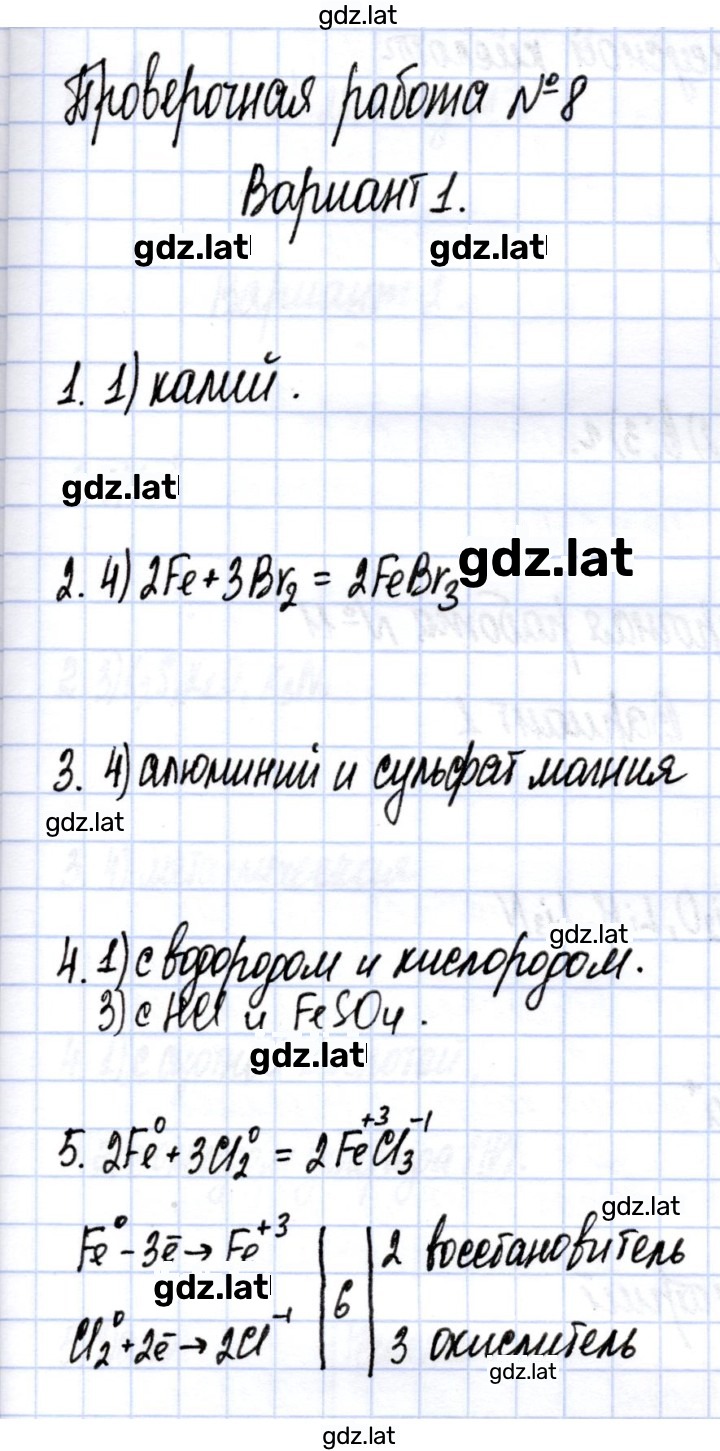 gdz.lat
Проверочная работа №8
Вариант 1.
gdz.lat gdz.lat
1. 1) калий.
gdz.lat
2. 4) 2Fe + 3Br₂ = 2FeBr₃ gdz.lat
3. 4) алюминий и сульфат магния
gdz.lat
gdz.lat
4. 1) с водородом и кислородом.
3) с HCl и FeSO₄.
gdz.lat
5. 2Fe⁰ + 3Cl₂⁰ = 2Fe⁺³Cl₃⁻¹
gdz.lat
Fe⁰ - 3ē → Fe⁺³ | | 2 восстановитель
gdz.lat | 6 |
Cl₂⁰ + 2ē → 2Cl⁻¹ | | 3 окислитель
gdz.lat
gdz.lat